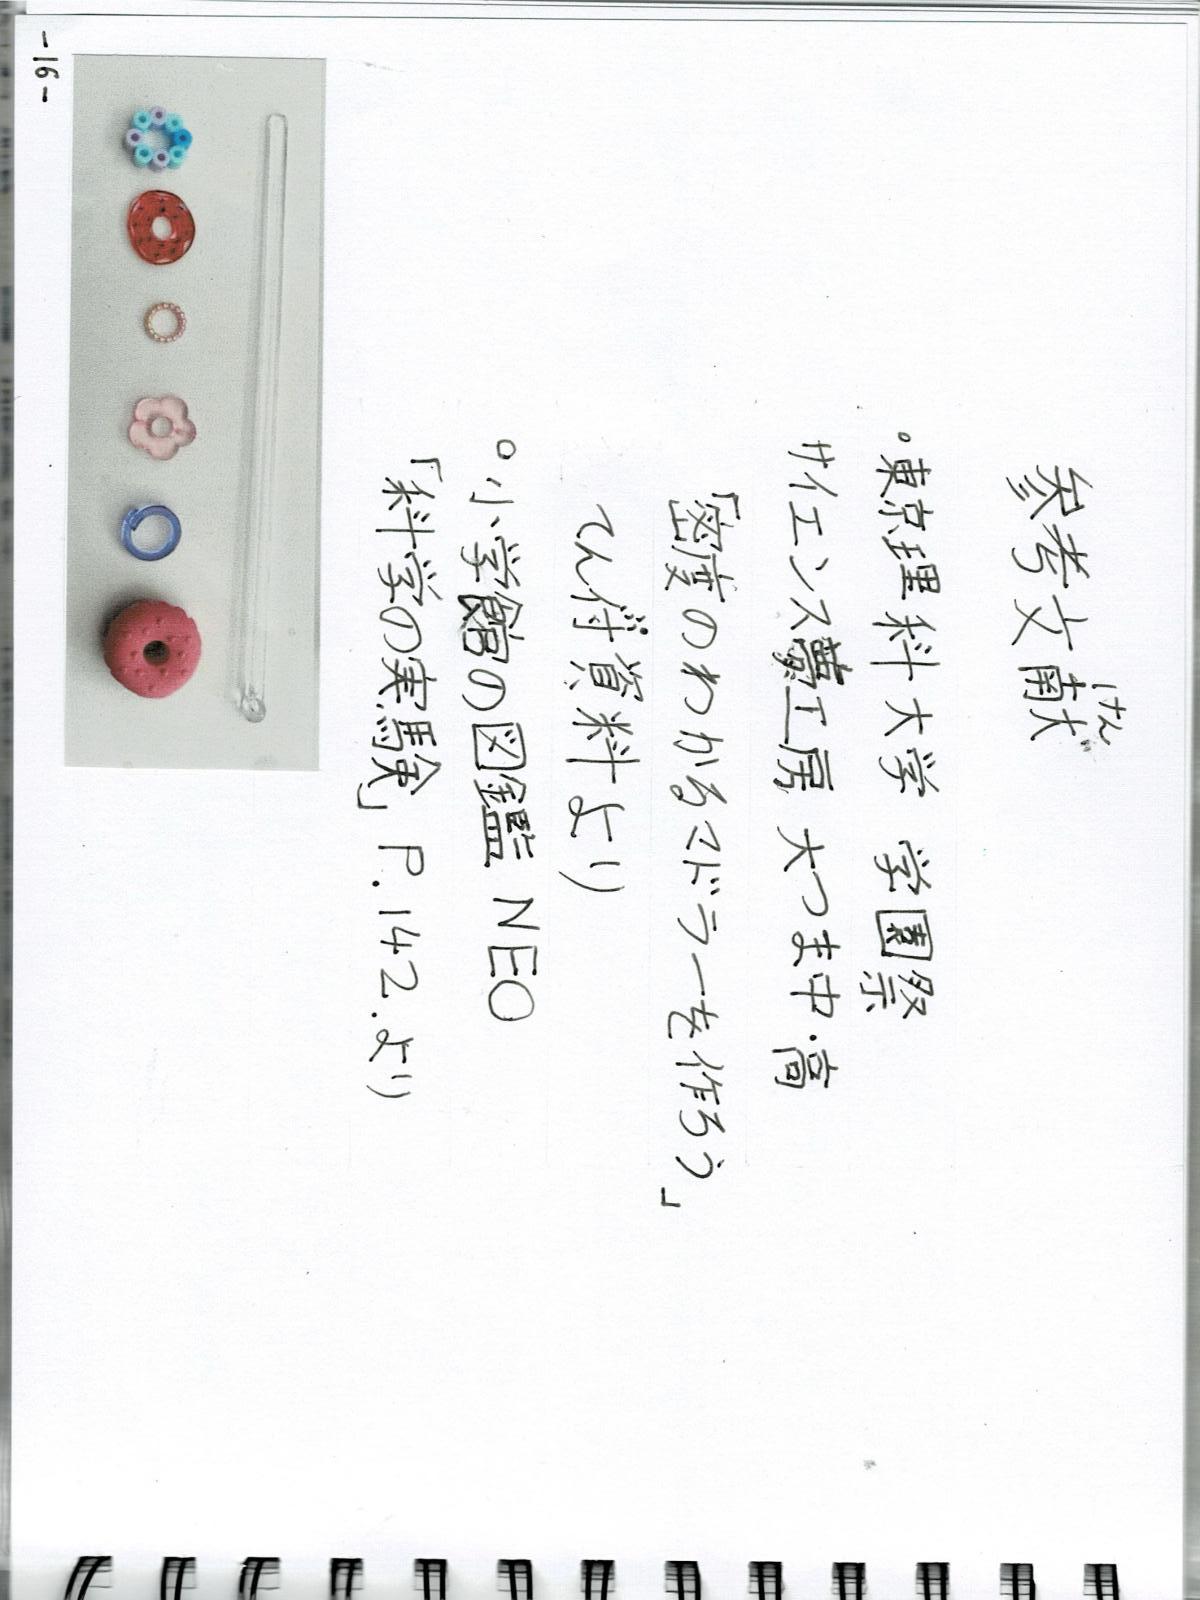 参考文献
けん
・東京理科大学 学園祭
サイエンス夢工房 大つま中・高
「密度のわかるマドラーを作ろう」
てん付資料より
○小学館の図鑑 NEO
「科学の実験」P.142.より
-16-